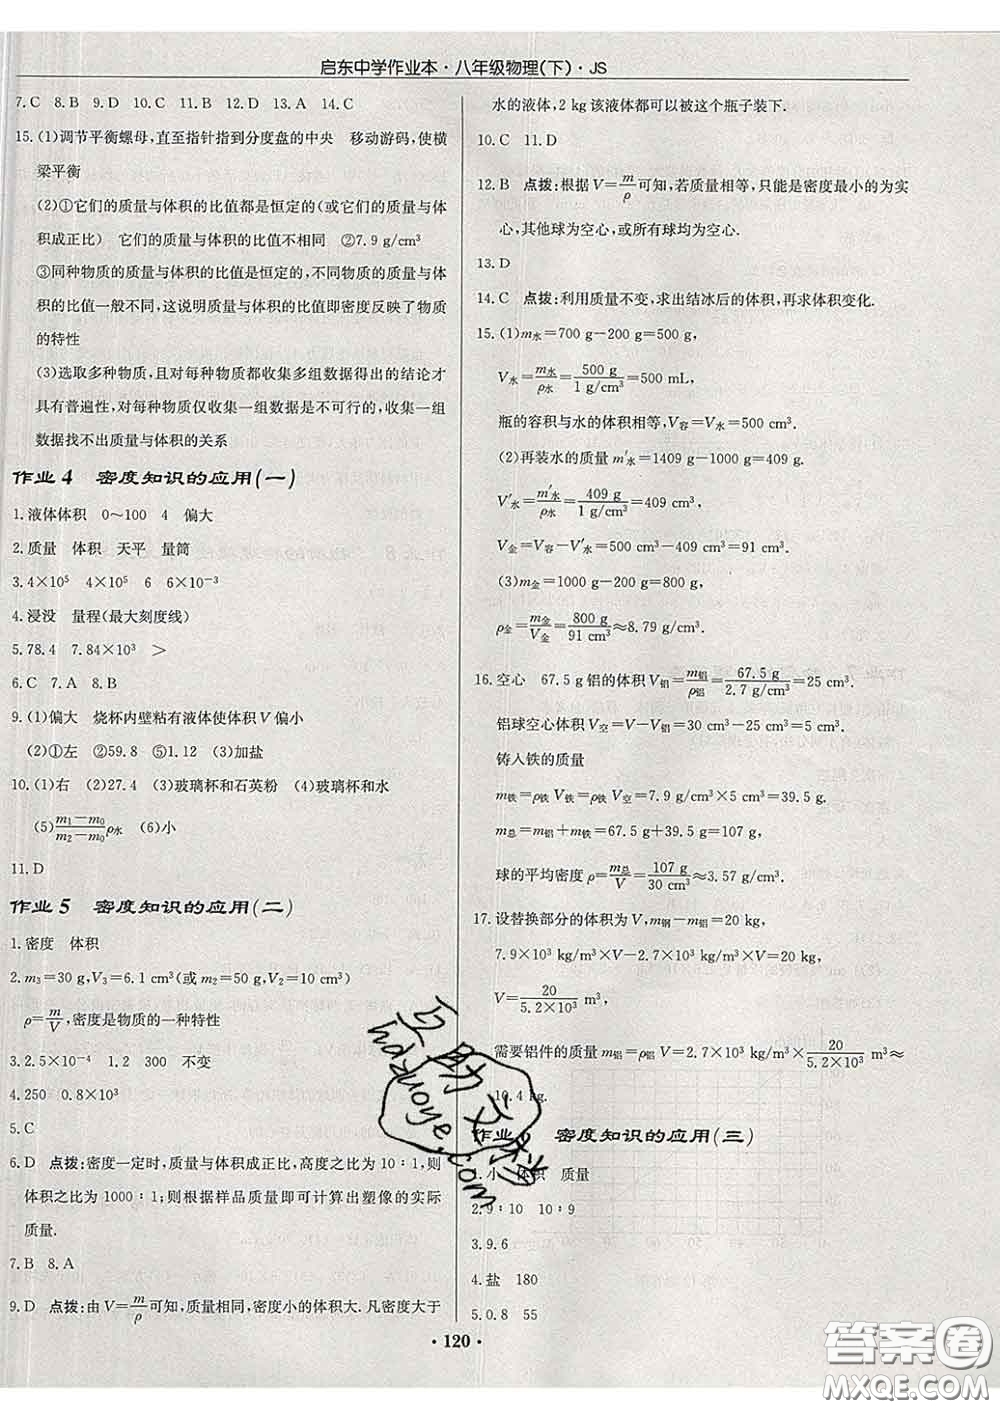 启东中学作业本·八年级物理(下)·JS
7.C 8.B 9.D 10.C 11.C 12.D 13.A 14.C
15.(1)调节平衡螺母,直至指针指到分度盘的中央 移动游码,使横
梁平衡
(2)①它们的质量与体积的比值都是恒定的(或它们的质量与体
积成正比) 它们的质量与体积的比值不相同 ②7.9 g/cm³
③同种物质的质量与体积的比值是恒定的,不同物质的质量与体
积的比值一般不同,这说明质量与体积的比值即密度反映了物质
的特性
(3)选取多种物质,且对每种物质都收集多组数据得出的结论才
具有普遍性,对每种物质仅收集一组数据是不可行的,收集一组
数据找不出质量与体积的关系
作业4 密度知识的应用(一)
1.液体体积 0～100 4 偏大
2.质量 体积 天平 量筒
3.4×10⁵ 4×10⁵ 6 6×10⁻³
4.浸没 量程(最大刻度线)
5.78.4 7.84×10³ >
6.C 7.A 8.B
9.(1)偏大 烧杯内壁粘有液体使体积V偏小
(2)①左 ②59.8 ⑤1.12 ③加盐
10.(1)右 (2)27.4 (3)玻璃杯和石英粉 (4)玻璃杯和水
(5)(m₁−m₀)/(m₂−m₀)ρ水 (6)小
11.D
作业5 密度知识的应用(二)
1.密度 体积
2.m₃=30 g,V₃=6.1 cm³(或m₂=50 g,V₂=10 cm³)
ρ=m/V,密度是物质的一种特性
3.2.5×10⁻⁴ 1.2 300 不变
4.250 0.8×10³
5.C
6.D 点拨:密度一定时,质量与体积成正比,高度之比为10∶1,则
体积之比为1000∶1;则根据样品质量即可计算出塑像的实际
质量.
7.B 8.A
9.D 点拨:由V=m/ρ可知,质量相同,密度小的体积大.凡密度大于
水的液体,2 kg该液体都可以被这个瓶子装下.
10.C 11.D
12.B 点拨:根据V=m/ρ可知,若质量相等,只能是密度最小的为实
心,其他球为空心,或所有球均为空心.
13.D
14.C 点拨:利用质量不变,求出结冰后的体积,再求体积变化.
15.(1)m水=700 g−200 g=500 g,
V水=m水/ρ水=500 g/1 g/cm³=500 mL,
瓶的容积与水的体积相等,V容=V水=500 cm³.
(2)再装水的质量m′水=1409 g−1000 g=409 g,
V′水=m′水/ρ水=409 g/1 g/cm³=409 cm³,
V金=V容−V′水=500 cm³−409 cm³=91 cm³.
(3)m金=1000 g−200 g=800 g,
ρ金=m金/V金=800 g/91 cm³≈8.79 g/cm³.
16.空心 67.5 g铝的体积V铝=m铝/ρ铝=67.5 g/2.7 g/cm³=25 cm³.
铝球空心体积V空=V−V铝=30 cm³−25 cm³=5 cm³.
铸入铁的质量
m铁=ρ铁V铁=ρ铁V空=7.9 g/cm³×5 cm³=39.5 g.
m总=m铝+m铁=67.5 g+39.5 g=107 g,
球的平均密度ρ=m总/V=107 g/30 cm³≈3.57 g/cm³.
17.设替换部分的体积为V,m钢−m铝=20 kg,
7.9×10³ kg/m³×V−2.7×10³ kg/m³×V=20 kg,
V=20/5.2×10³ m³,
需要铝件的质量m铝=ρ铝V=2.7×10³ kg/m³×20/5.2×10³ m³≈
10.4 kg.
作业 密度知识的应用(三)
1.小 体积 质量
2.9∶10 10∶9
3.9.6
4.盐 180
5.0.8 55
·120·
hdzuoye.com
答案圈
MXQE.COM